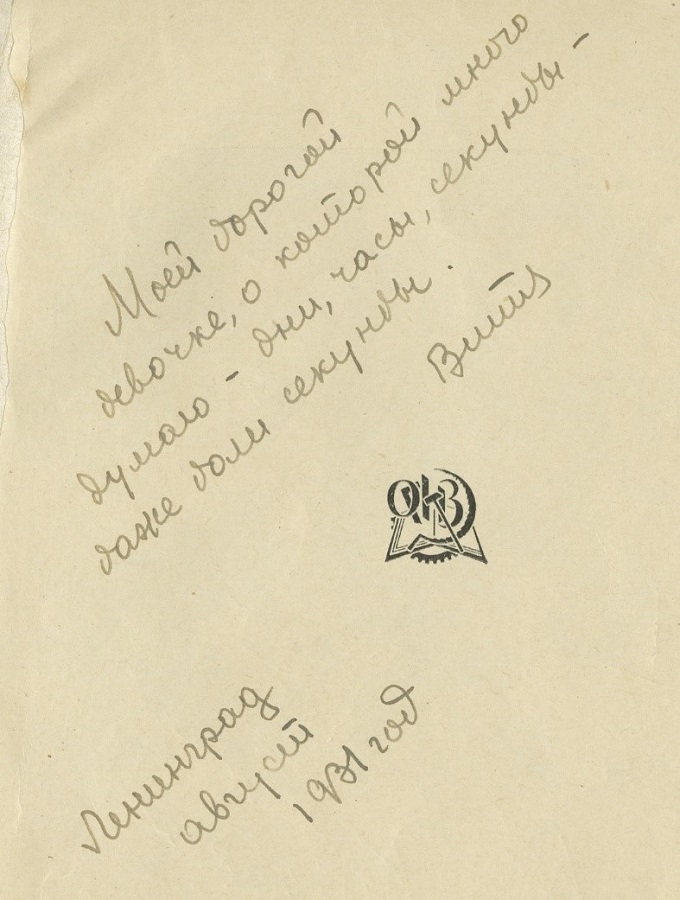 Моей дорогой
девочке, о которой много
думаю – дни, часы, секунды –
даже доли секунды.
Витя
ОГИЗ
Ленинград
август
1931 год